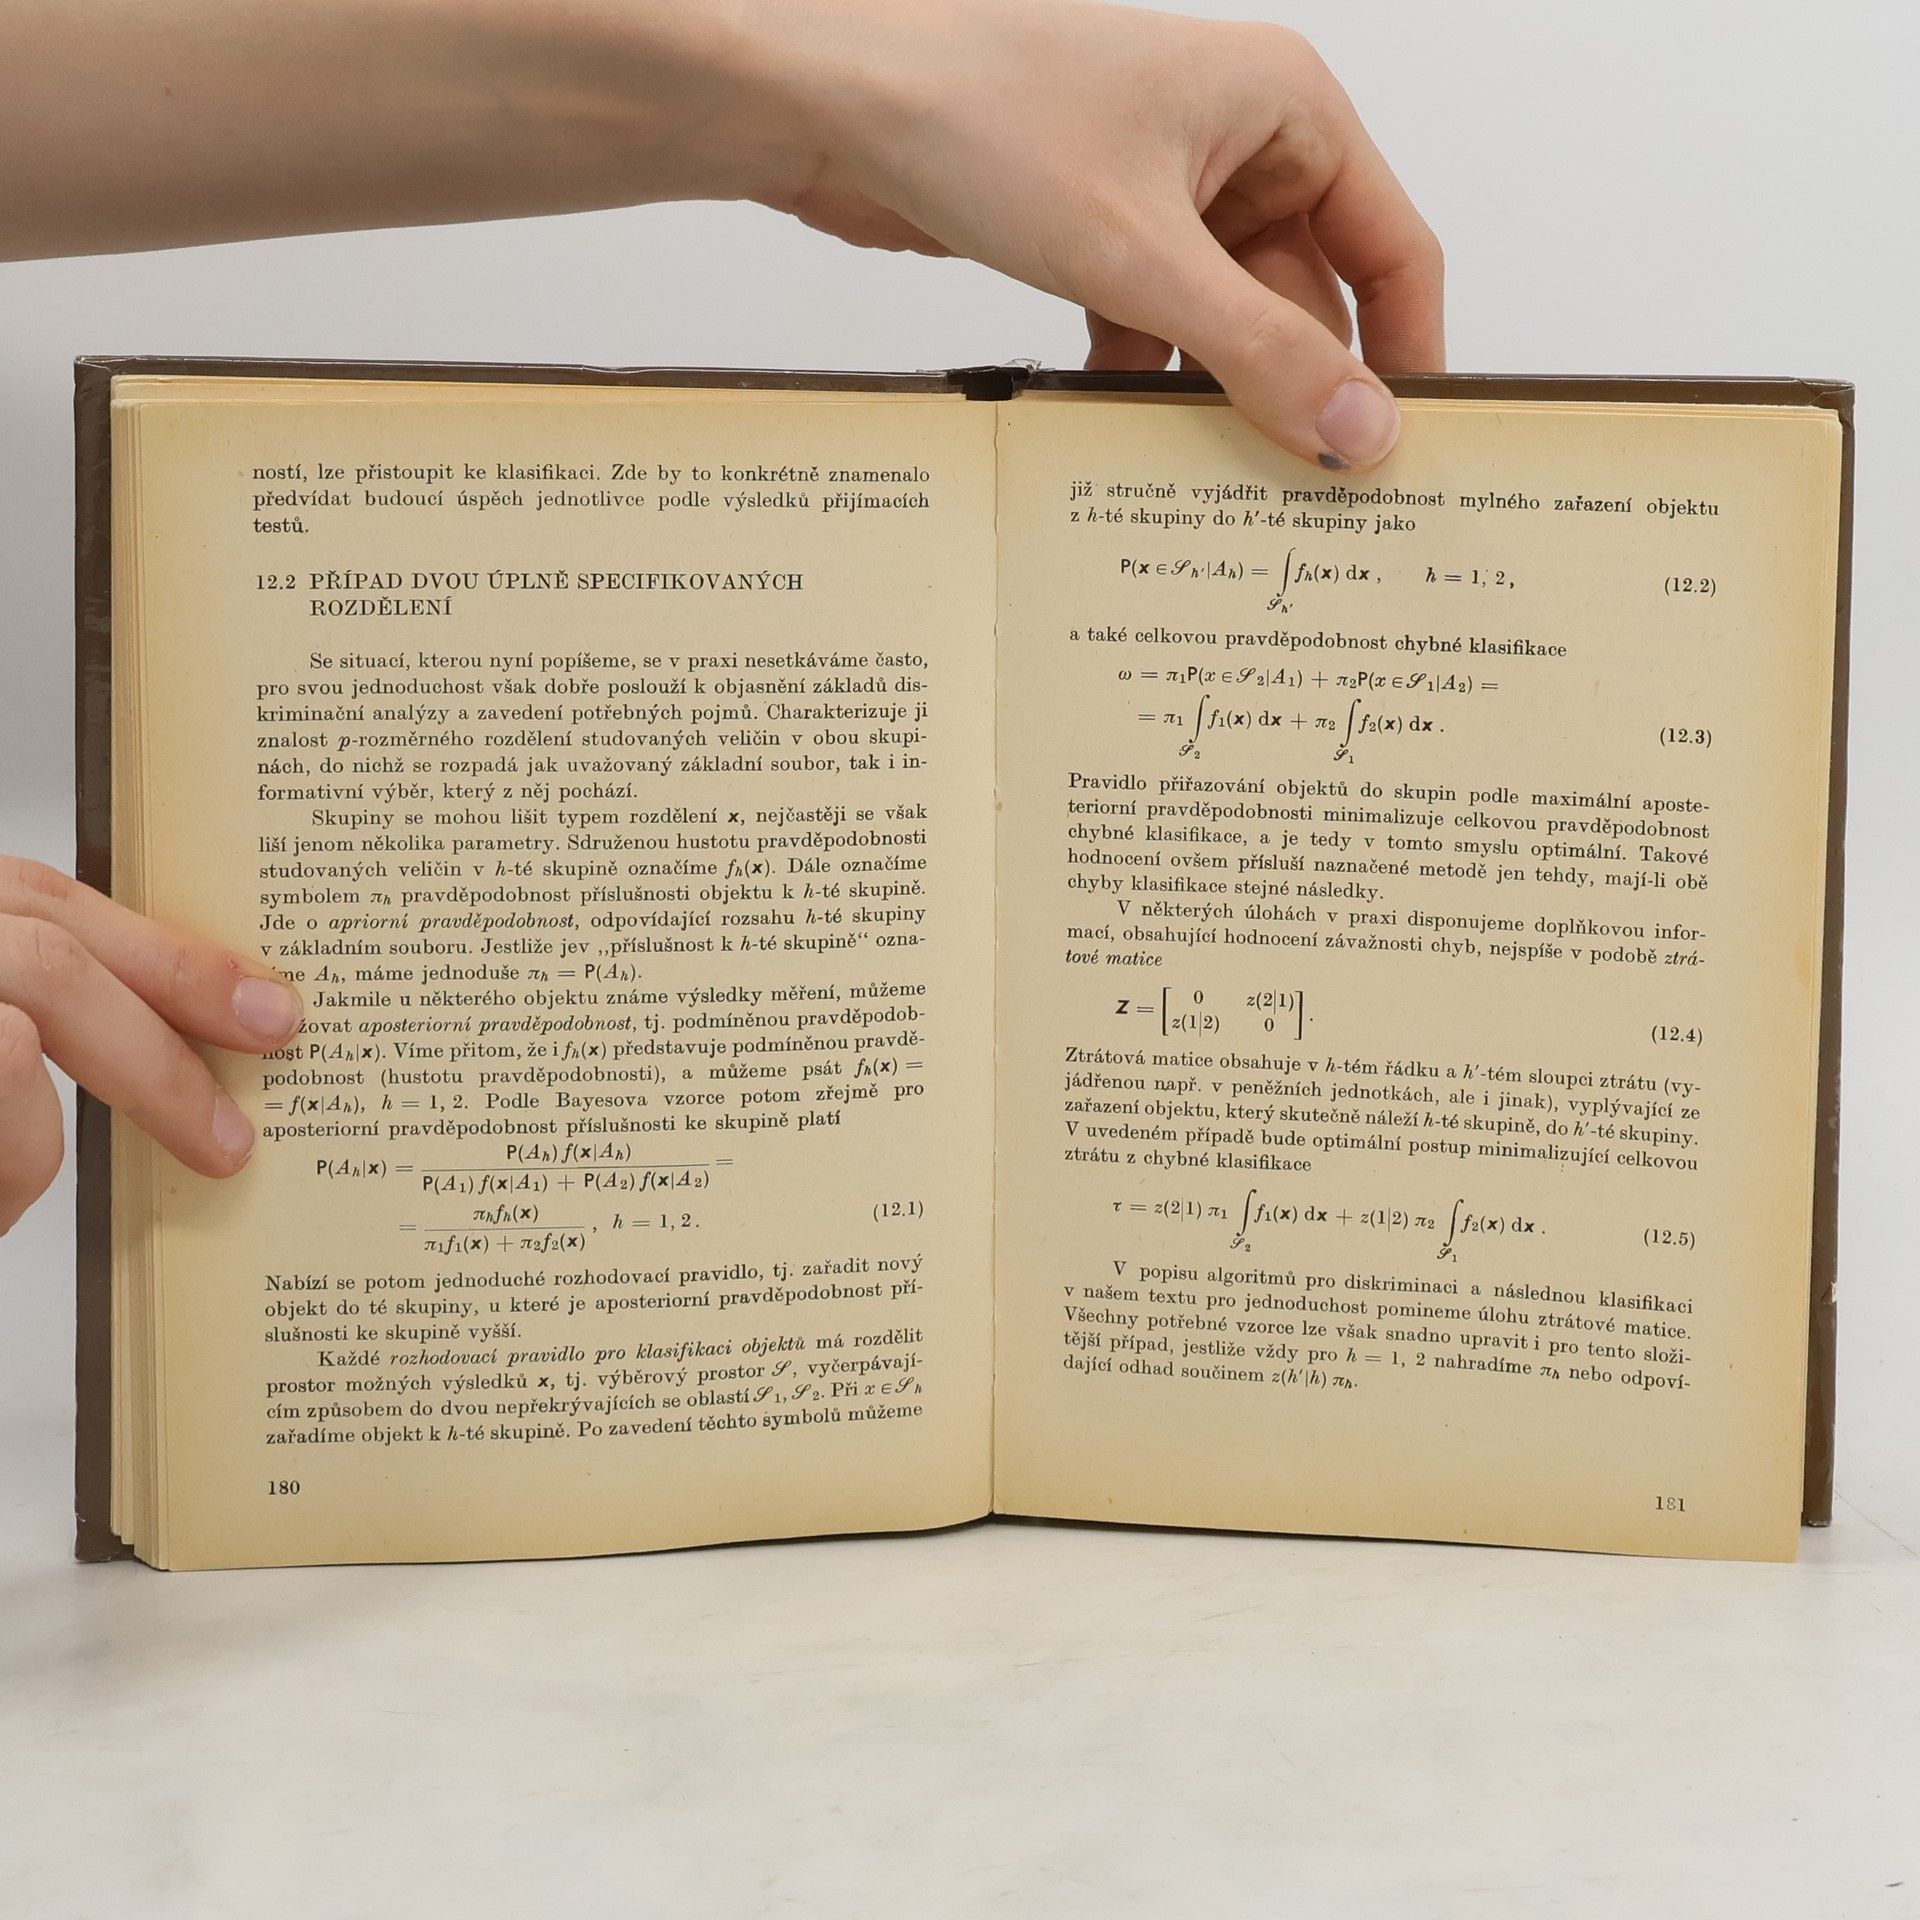 ností, lze přistoupit ke klasifikaci. Zde by to konkrétně znamenalo
předvídat budoucí úspěch jednotlivce podle výsledků přijímacích
testů.
12.2 PŘÍPAD DVOU ÚPLNĚ SPECIFIKOVANÝCH
ROZDĚLENÍ
Se situací, kterou nyní popíšeme, se v praxi nesetkáváme často,
pro svou jednoduchost však dobře poslouží k objasnění základů dis-
kriminační analýzy a zavedení potřebných pojmů. Charakterizuje ji
znalost p-rozměrného rozdělení studovaných veličin v obou skupi-
nách, do nichž se rozpadá jak uvažovaný základní soubor, tak i in-
formativní výběr, který z něj pochází.
Skupiny se mohou lišit typem rozdělení x, nejčastěji se však
liší jenom několika parametry. Sdruženou hustotu pravděpodobnosti
studovaných veličin v h-té skupině označíme fₕ(x). Dále označíme
symbolem πₕ pravděpodobnost příslušnosti objektu k h-té skupině.
Jde o apriorní pravděpodobnost, odpovídající rozsahu h-té skupiny
v základním souboru. Jestliže jev „příslušnost k h-té skupině“ ozna-
me Aₕ, máme jednoduše πₕ = P(Aₕ).
Jakmile u některého objektu známe výsledky měření, můžeme
žovat aposteriorní pravděpodobnost, tj. podmíněnou pravděpodob-
nost P(Aₕ|x). Víme přitom, že i fₕ(x) představuje podmíněnou pravdě-
podobnost (hustotu pravděpodobnosti), a můžeme psát fₕ(x) =
= f(x|Aₕ), h = 1, 2. Podle Bayesova vzorce potom zřejmě pro
aposteriorní pravděpodobnost příslušnosti ke skupině platí
P(Aₕ|x) = P(Aₕ) f(x|Aₕ) / P(A₁) f(x|A₁) + P(A₂) f(x|A₂) =
= πₕfₕ(x) / π₁f₁(x) + π₂f₂(x) , h = 1, 2. (12.1)
Nabízí se potom jednoduché rozhodovací pravidlo, tj. zařadit nový
objekt do té skupiny, u které je aposteriorní pravděpodobnost pří-
slušnosti ke skupině vyšší.
Každé rozhodovací pravidlo pro klasifikaci objektů má rozdělit
prostor možných výsledků x, tj. výběrový prostor 𝒮, vyčerpávají-
cím způsobem do dvou nepřekrývajících se oblastí 𝒮₁, 𝒮₂. Při x ∈ 𝒮ₕ
zařadíme objekt k h-té skupině. Po zavedení těchto symbolů můžeme
180
již stručně vyjádřit pravděpodobnost mylného zařazení objektu
z h-té skupiny do h′-té skupiny jako
P(x ∈ 𝒮ₕ′|Aₕ) = ∫ fₕ(x) dx , h = 1, 2, (12.2)
𝒮ₕ′
a také celkovou pravděpodobnost chybné klasifikace
ω = π₁P(x ∈ 𝒮₂|A₁) + π₂P(x ∈ 𝒮₁|A₂) =
= π₁ ∫ f₁(x) dx + π₂ ∫ f₂(x) dx . (12.3)
𝒮₂ 𝒮₁
Pravidlo přiřazování objektů do skupin podle maximální aposte-
teriorní pravděpodobnosti minimalizuje celkovou pravděpodobnost
chybné klasifikace, a je tedy v tomto smyslu optimální. Takové
hodnocení ovšem přísluší naznačené metodě jen tehdy, mají-li obě
chyby klasifikace stejné následky.
V některých úlohách v praxi disponujeme doplňkovou infor-
mací, obsahující hodnocení závažnosti chyb, nejspíše v podobě ztrá-
tové matice
Z = [ 0 z(2|1)
z(1|2) 0 ] . (12.4)
Ztrátová matice obsahuje v h-tém řádku a h′-tém sloupci ztrátu (vy-
jádřenou např. v peněžních jednotkách, ale i jinak), vyplývající ze
zařazení objektu, který skutečně náleží h-té skupině, do h′-té skupiny.
V uvedeném případě bude optimální postup minimalizující celkovou
ztrátu z chybné klasifikace
τ = z(2|1) π₁ ∫ f₁(x) dx + z(1|2) π₂ ∫ f₂(x) dx . (12.5)
𝒮₂ 𝒮₁
V popisu algoritmů pro diskriminaci a následnou klasifikaci
v našem textu pro jednoduchost pomineme úlohu ztrátové matice.
Všechny potřebné vzorce lze však snadno upravit i pro tento složi-
tější případ, jestliže vždy pro h = 1, 2 nahradíme πₕ nebo odpoví-
dající odhad součinem z(h′|h) πₕ.
181